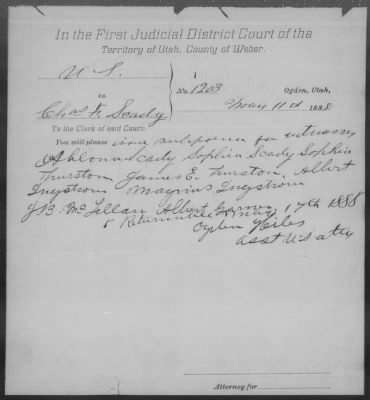 In the First Judicial District Court of the
Territory of Utah, County of Weber.
U S.
vs.
No. 1203
Ogden, Utah,
May 11th 1888.
Chas F. Scady
To the Clerk of said Court:
You will please issue subpoena for witnesses
Scady Sophia Scady Sophia
Thurston James E. Thurston, Albert
Ingstrom Magnus Ingstrom
J B. McLellan Albert Garner
& Returnable May, 17th 1888
Ogden Hiles
asst U.S atty
Attorney for